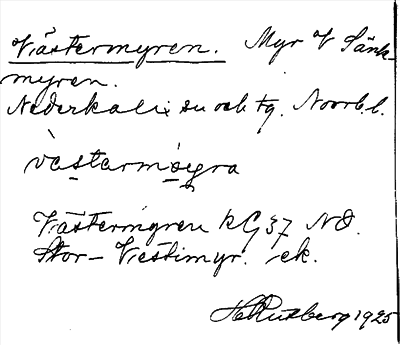 Västermyren. Myr V Sänk-
myren.
Nederkalix sn och tg. Norrb. l.
västarmøgra
Västermyren RG 37 NO.
Stor- Vestimyr. ek.
H Rutberg 1925